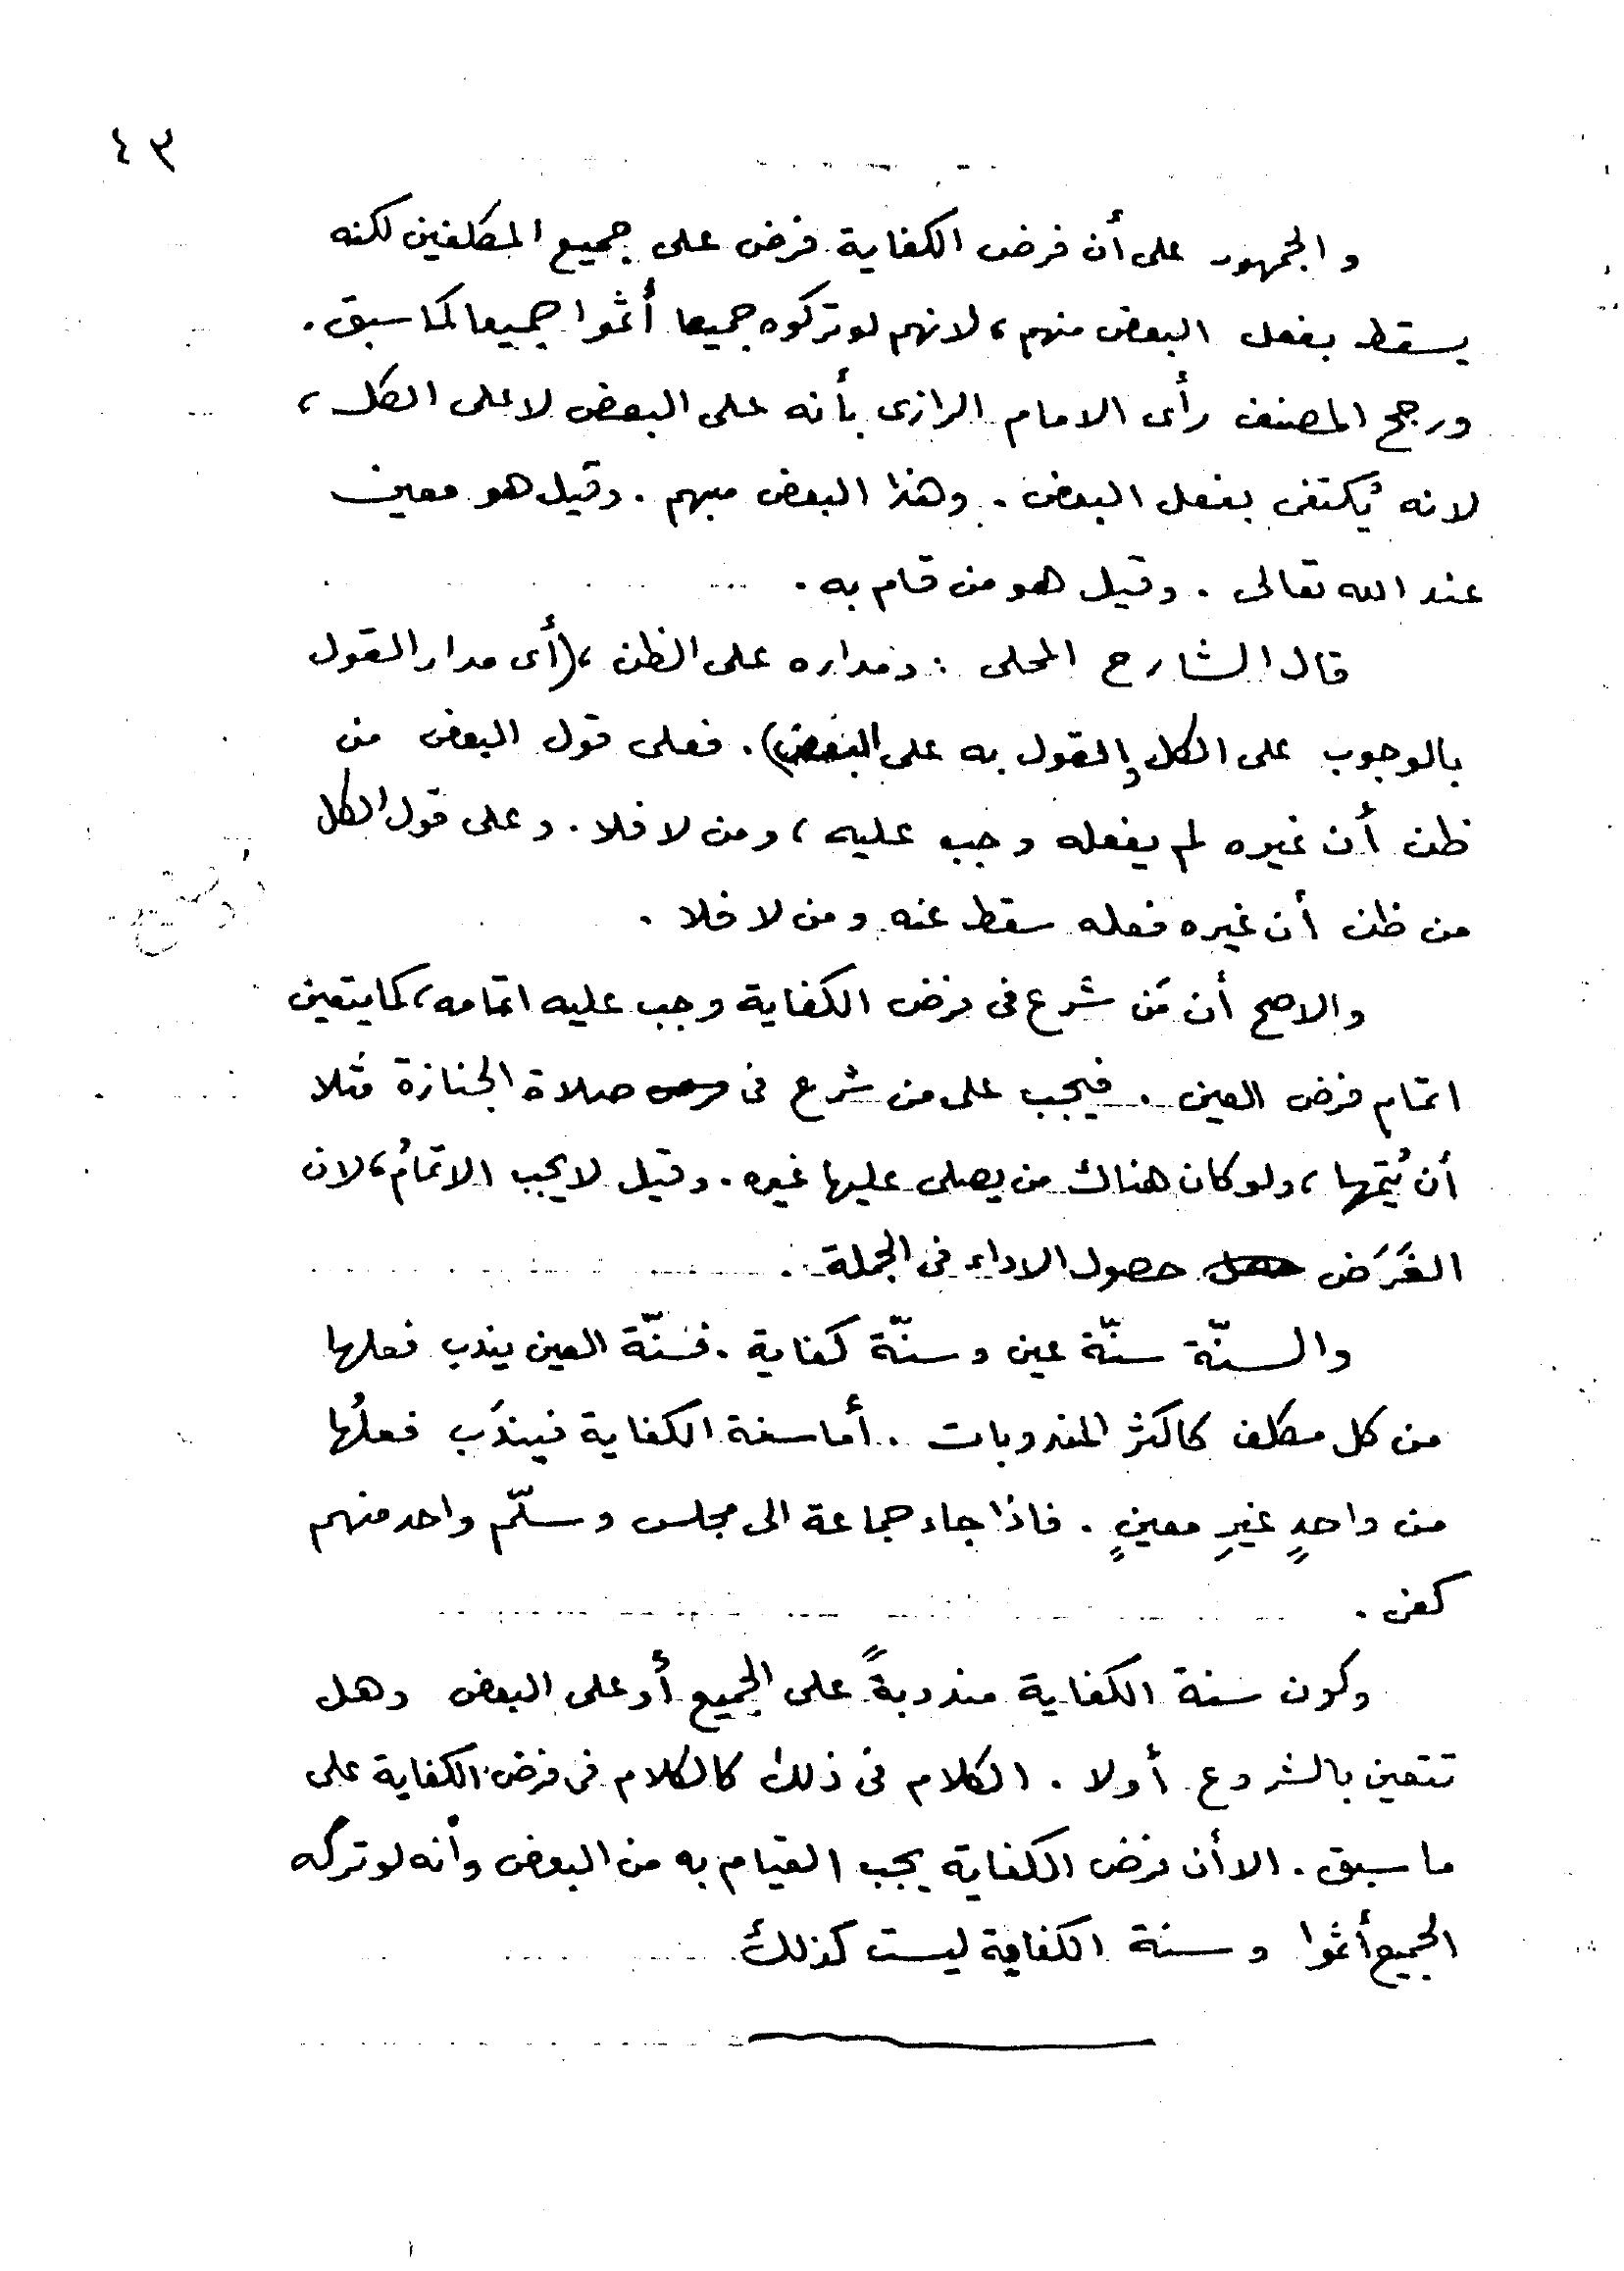 ٤٣
والجمهور على أن فرض الكفاية فرض على جميع المكلفين لكنه
يسقط بفعل البعض منهم، لانهم لو تركوه جميعا أثموا جميعا كما سبق.
ورجح المصنف رأى الامام الرازى بأنه على البعض لا على الكل،
لانه يُكتفى بفعل البعض. وهذا البعض مبهم. وقيل هو معين
عند الله تعالى. وقيل هو من قام به.
قال الشارح المحلى: ومداره على الظن، (أى مدار القول
بالوجوب على الكل والقول به على البعض). فعلى قول البعض من
ظن أن غيره لم يفعله وجب عليه، ومن لا فلا. وعلى قول الكل
من ظن أن غيره فعله سقط عنه ومن لا فلا.
والاصح أن مَن شرع فى فرض الكفاية وجب عليه اتمامه، كما يتعين
اتمام فرض العين. فيجب على من شرع فى صلاة الجنازة مثلا
أن يُتمها، ولو كان هناك من يصلى عليها غيره. وقيل لا يجب الاتمامُ، لان
الغَرَض حصول الاداء فى الجملة.
والسنّة سنّة عين وسنّة كفاية. فسنّة العين يندب فعلها
من كل مكلف كاكثر المندوبات. أما سنة الكفاية فيندَب فعلُها
من واحدٍ غيرِ معينٍ. فاذا جاء جماعة الى مجلس وسلّم واحد منهم
كفى.
وكون سنة الكفاية مندوبةً على الجميع أو على البعض وهل
تتعين بالشروع أولا. الكلام فى ذلك كالكلام فى فرض الكفاية على
ما سبق. الا أن فرض الكفاية يجب القيام به من البعض وأنه لو تركه
الجميع أثموا وسنة الكفاية ليست كذلك